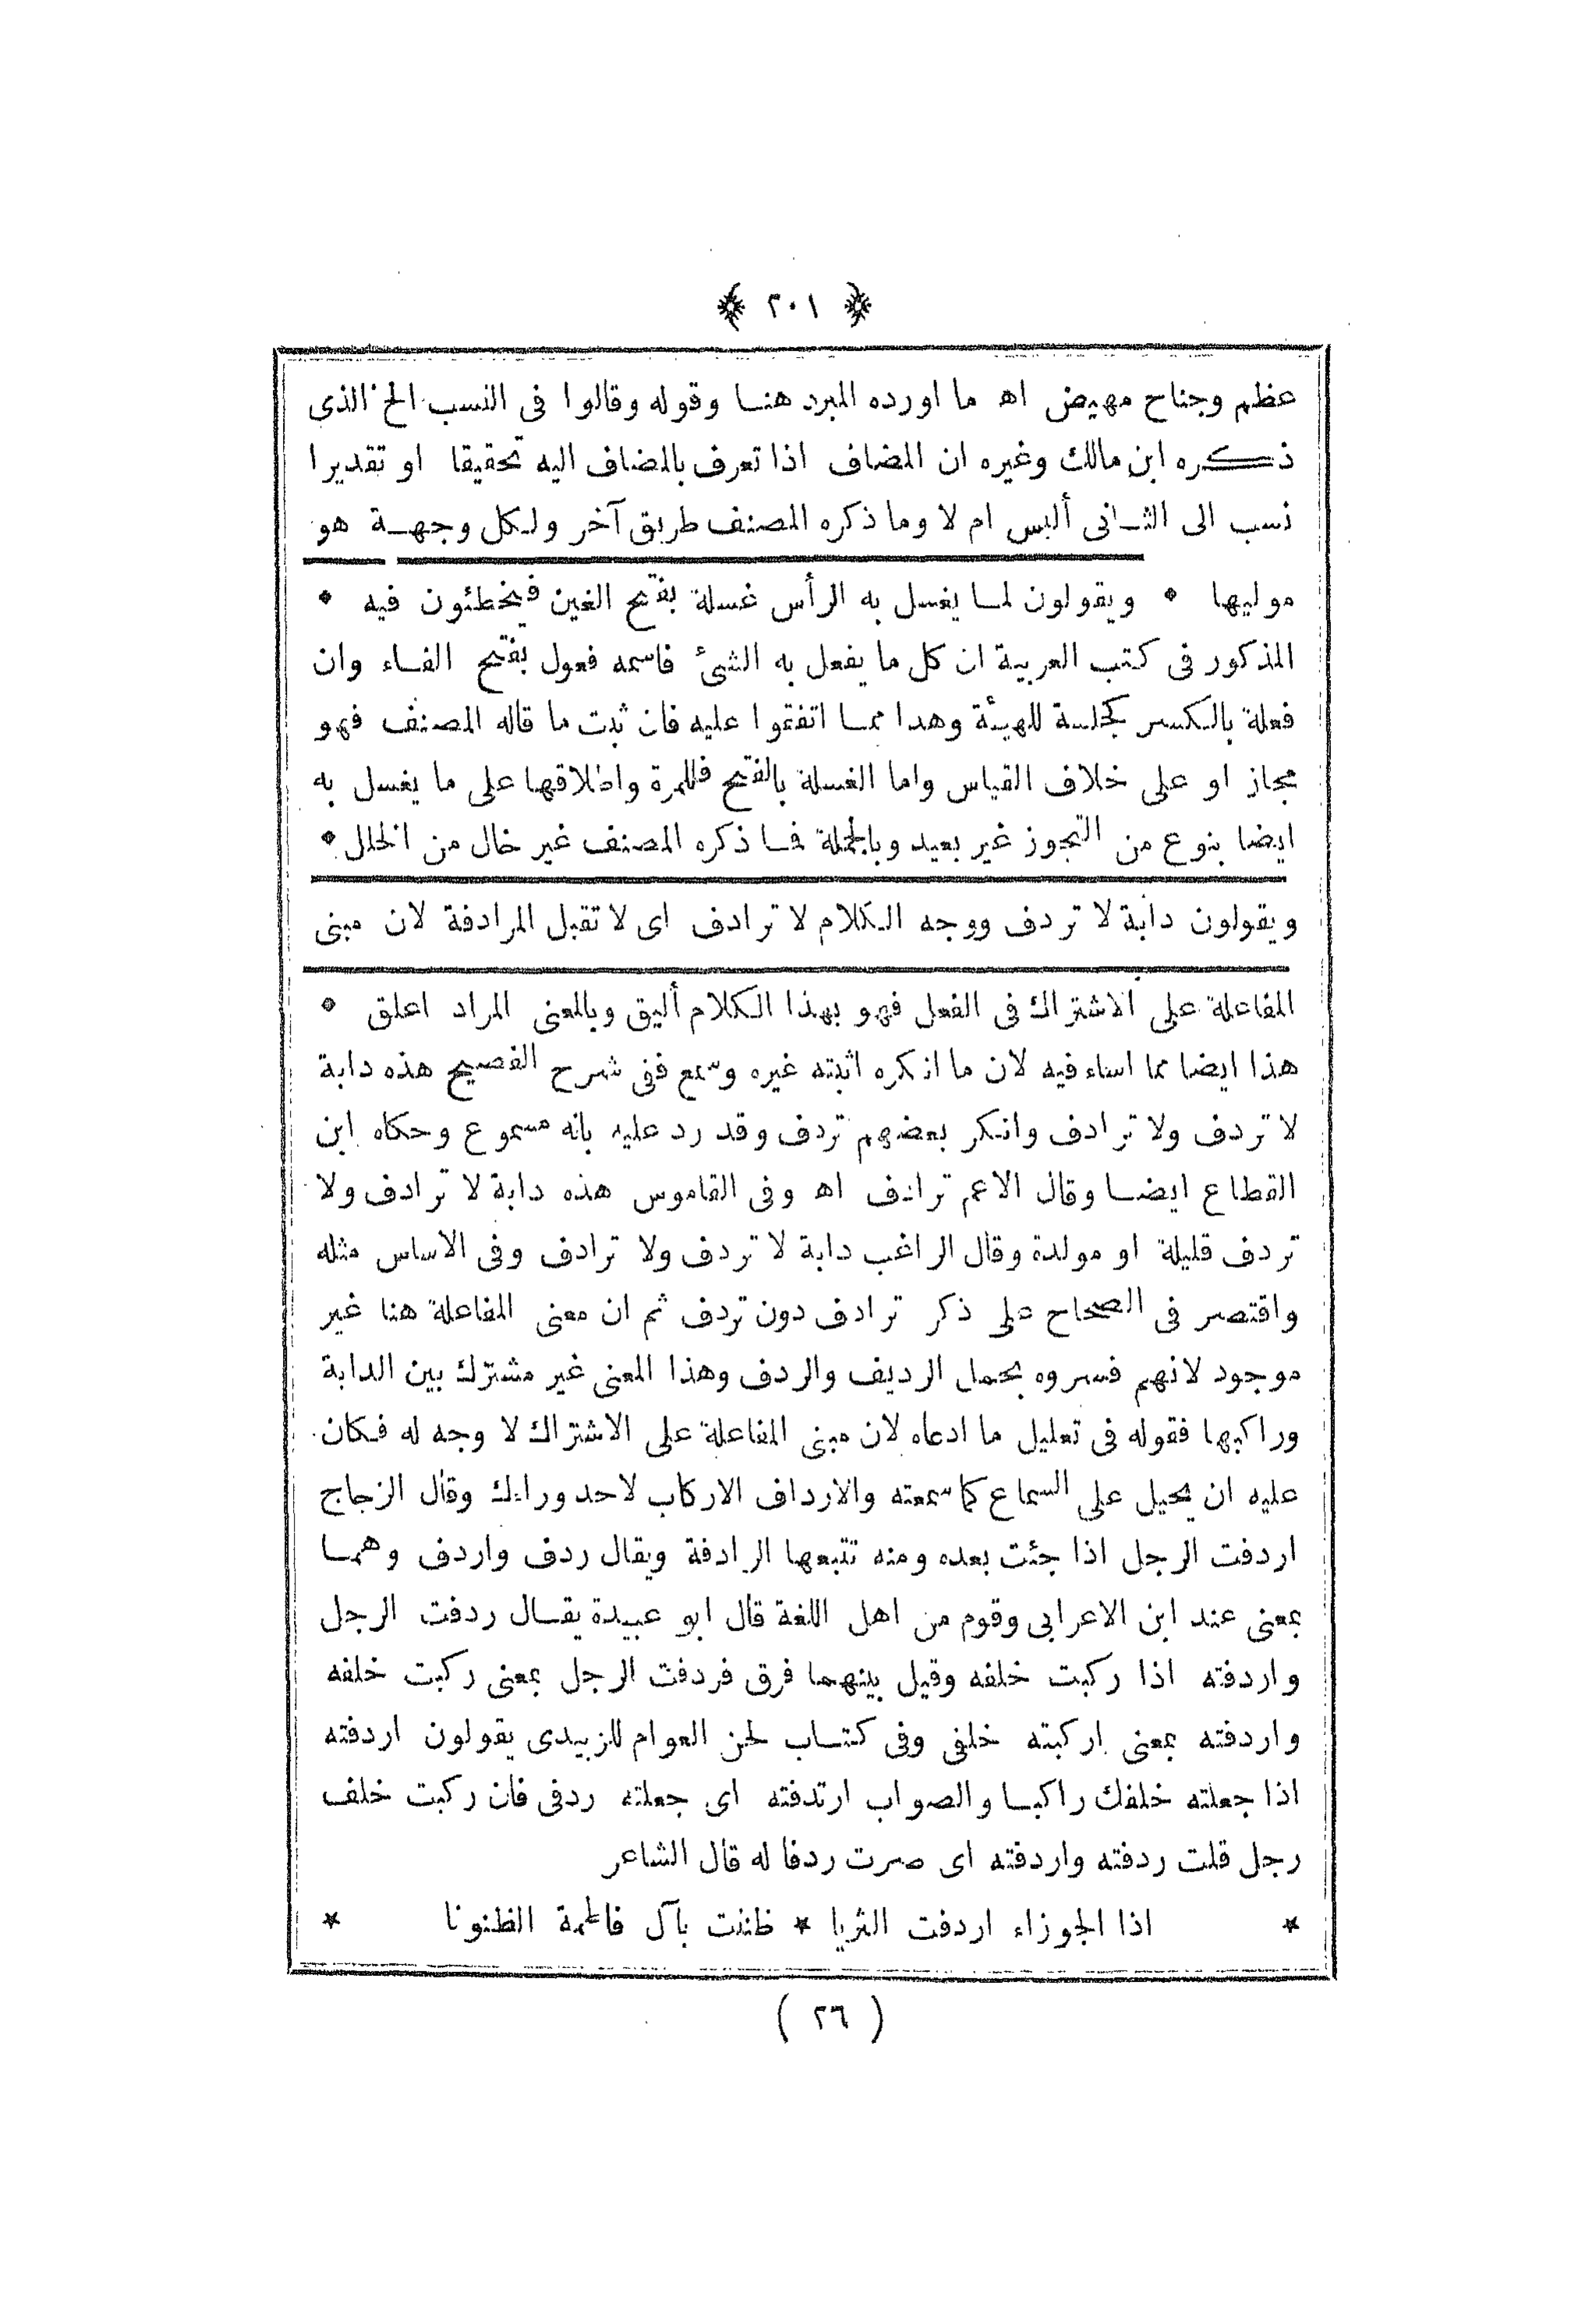 ﴿ ٢٠١ ﴾
عظم وجناح مهيض اه ما اورده المبرد هنا وقوله وقالوا فى النسب الخ الذى
ذكره ابن مالك وغيره ان المضاف اذا تعرف بالمضاف اليه تحقيقا او تقديرا
نسب الى الثانى ألبس ام لا وما ذكره المصنف طريق آخر ولكل وجهة هو
موليها * ويقولون لما يغسل به الرأس غسلة بفتح الغين فيخطئون فيه *
المذكور فى كتب العربية ان كل ما يفعل به الشئ فاسمه فعول بفتح الفاء وان
فعلة بالكسر كجلسة للهيئة وهدا مما اتفقوا عليه فان ثبت ما قاله المصنف فهو
مجاز او على خلاف القياس واما الغسلة بالفتح فللمرة واطلاقها على ما يغسل به
ايضا بنوع من التجوز غير بعيد وبالجملة فما ذكره المصنف غير خال من الخلل *
ويقولون دابة لا تردف ووجه الكلام لا ترادف اى لا تقبل المرادفة لان مبنى
المفاعلة على الاشتراك فى الفعل فهو بهذا الكلام أليق وبالمعنى المراد اعلق *
هذا ايضا مما اساء فيه لان ما انكره اثبته غيره وسمع ففى شرح الفصيح هذه دابة
لا تردف ولا ترادف وانكر بعضهم تردف وقد رد عليه بانه مسموع وحكاه ابن
القطاع ايضا وقال الاعم ترادف اه وفى القاموس هذه دابة لا ترادف ولا
تردف قليلة او مولدة وقال الراغب دابة لا تردف ولا ترادف وفى الاساس مثله
واقتصر فى الصحاح على ذكر ترادف دون تردف ثم ان معنى المفاعلة هنا غير
موجود لانهم فسروه بحمل الرديف والردف وهذا المعنى غير مشترك بين الدابة
وراكبها فقوله فى تعليل ما ادعاه لان مبنى المفاعلة على الاشتراك لا وجه له فكان
عليه ان يحيل على السماع كما سمعته والارداف الاركاب لاحد وراءك وقال الزجاج
اردفت الرجل اذا جئت بعده ومنه تتبعها الرادفة ويقال ردف واردف وهما
بمعنى عند ابن الاعرابى وقوم من اهل اللغة قال ابو عبيدة يقال ردفت الرجل
واردفته اذا ركبت خلفه وقيل بينهما فرق فردفت الرجل بمعنى ركبت خلفه
واردفته بمعنى اركبته خلفى وفى كتاب لحن العوام للزبيدى يقولون اردفته
اذا جعلته خلفك راكبا والصواب ارتدفته اى جعلته ردفى فان ركبت خلف
رجل قلت ردفته واردفته اى صرت ردفا له قال الشاعر
* اذا الجوزاء اردفت الثريا * ظننت بآل فاطمة الظنونا *
( ٢٦ )